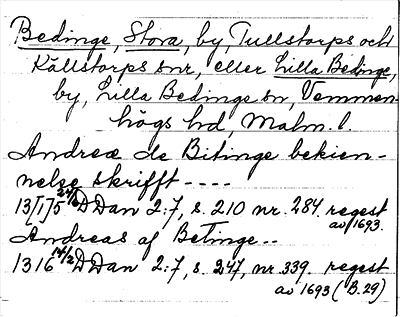 Bedinge, Stora, by, Tullstorps och
Källstorps snr, eller Lilla Bedinge,
by, Lilla Bedinge sn, Vemmen-
högs hd, Malm. l.
Andreæ de Bitinge bekien-
nelse skrifft ----
13[1]5 24/6 DDan 2:7, s. 210 nr. 284. regest
av 1693.
Andreas af Betinge..
1316 14/2 DDan 2:7, s. 247, nr. 339. regest
av 1693 (B. 29)